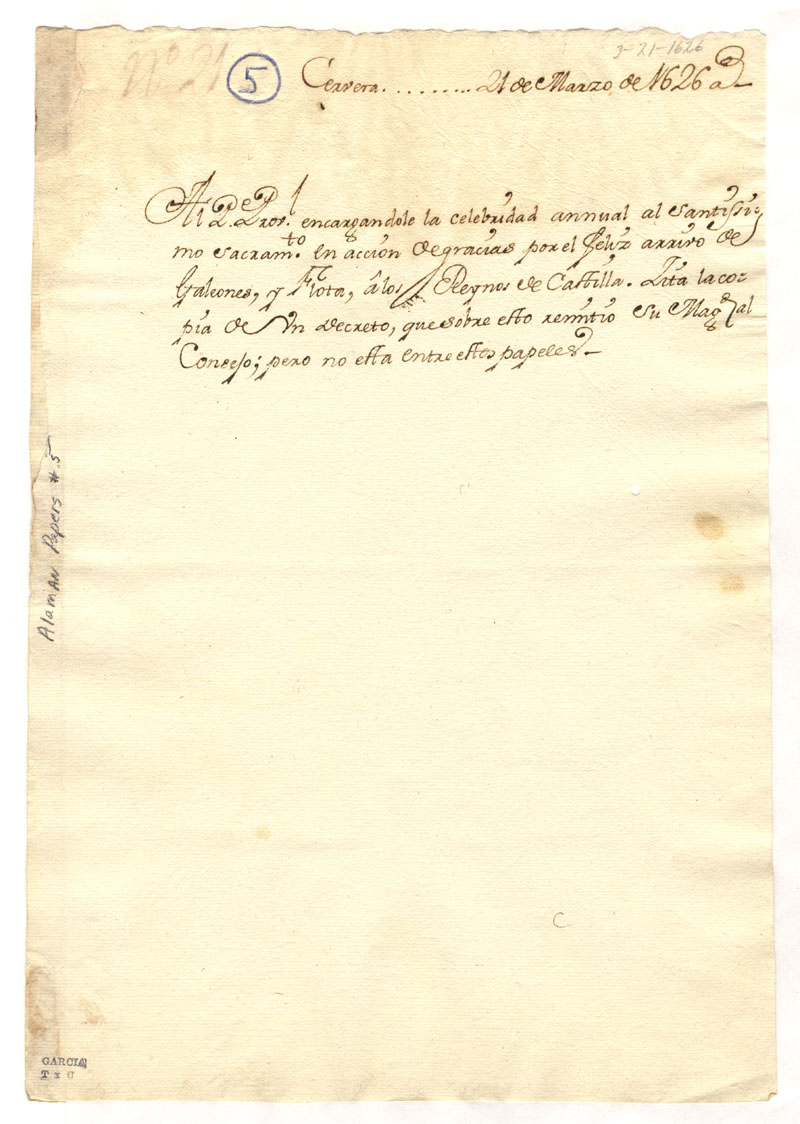 3-21-1626
Nº 21
5
Cervera......... 21 de Marzo de 1626 a.s
Al P.e Pror.l encargandole la celebridad annual al Santissi=
mo Sacram.to en acción de gracias por el feliz arrivo de
Galeones, y Flota, â los Reynos de Castilla. Cita la co=
pia de Vn decreto, que sobre esto remitio Su Mag.d al
Consejo; pero no esta entre estos papeles.
Alaman Papers #.5
C
GARCIA
T x U